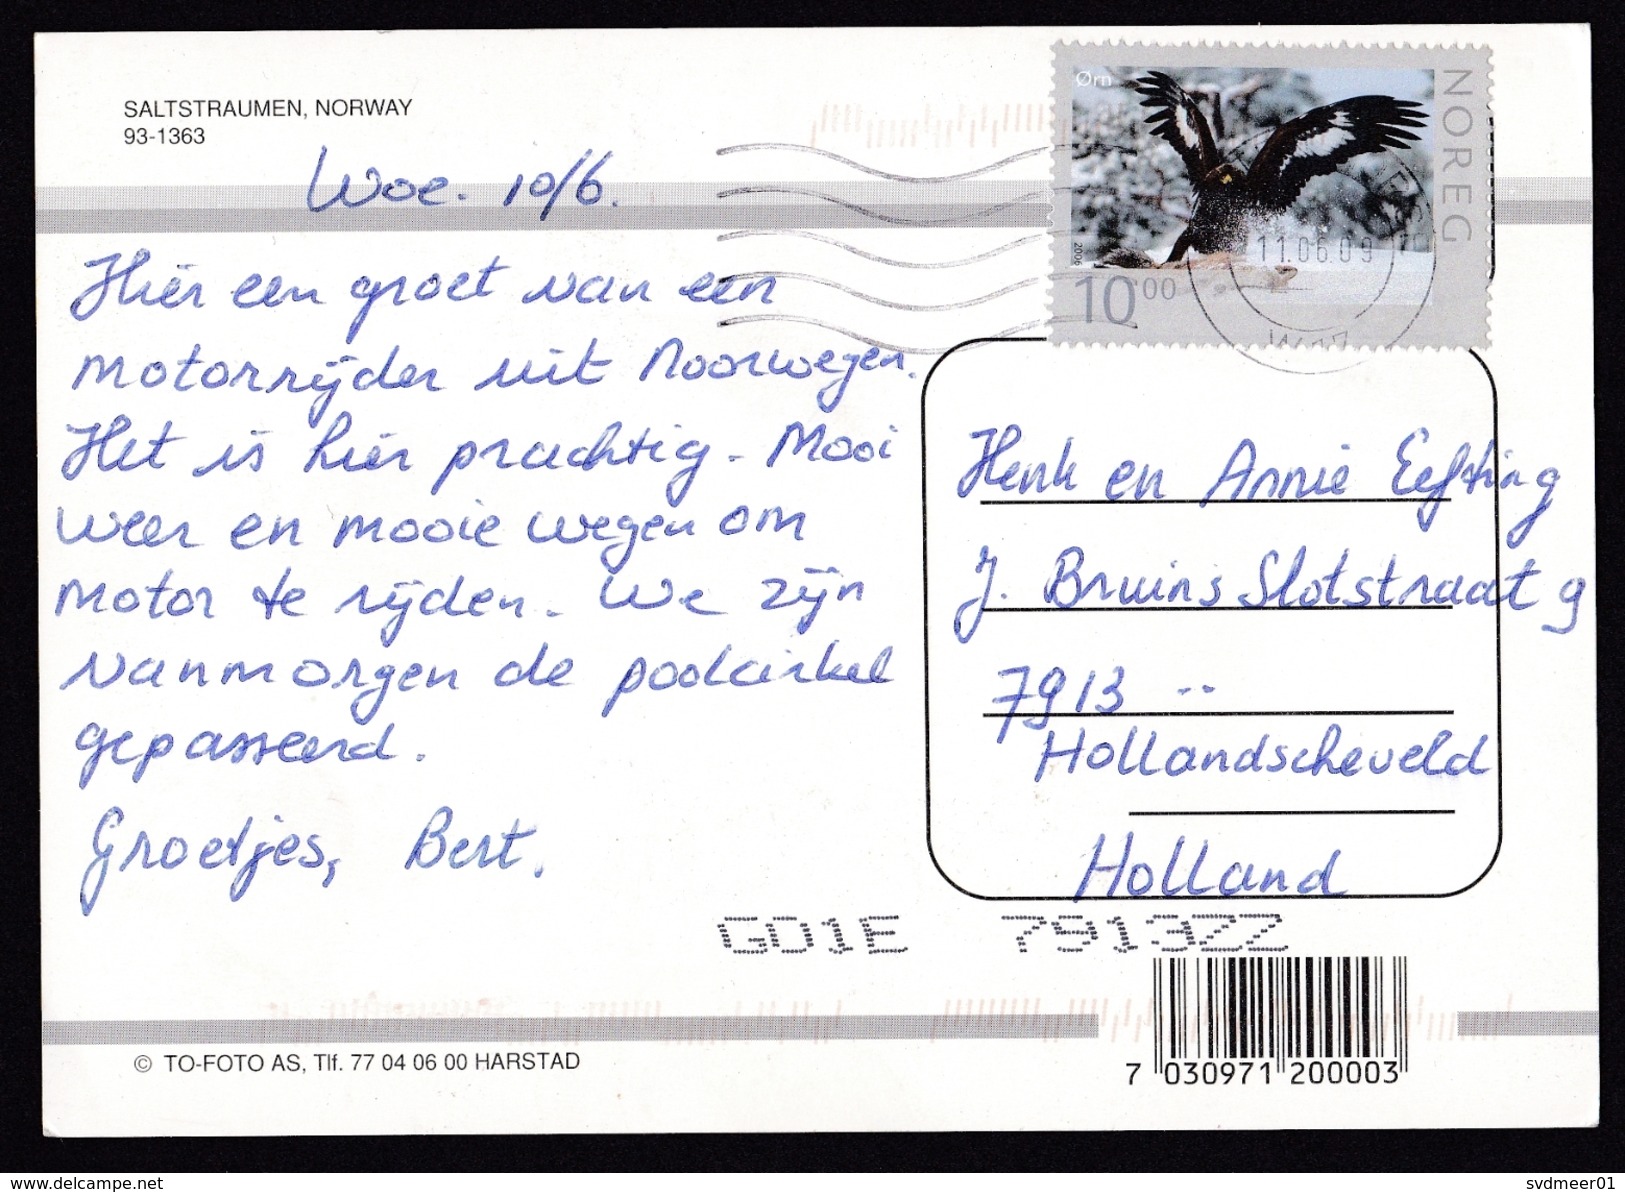 SALTSTRAUMEN, NORWAY
93-1363
Woe. 10/6.
Hier een groet van een
motorrijder uit Noorwegen.
Het is hier prachtig. Mooi
weer en mooie wegen om
motor te rijden. We zijn
vanmorgen de poolcirkel
gepasseerd.
Groetjes, Bert.
Ørn
NOREG
2006
10 00
11.06.09
Henk en Annie Eefting
J. Bruins Slotstraat 9
7913 --
Hollandscheveld
Holland
GD1E 7913ZZ
7 030971 200003
© TO-FOTO AS, Tlf. 77 04 06 00 HARSTAD
www.delcampe.net
svdmeer01